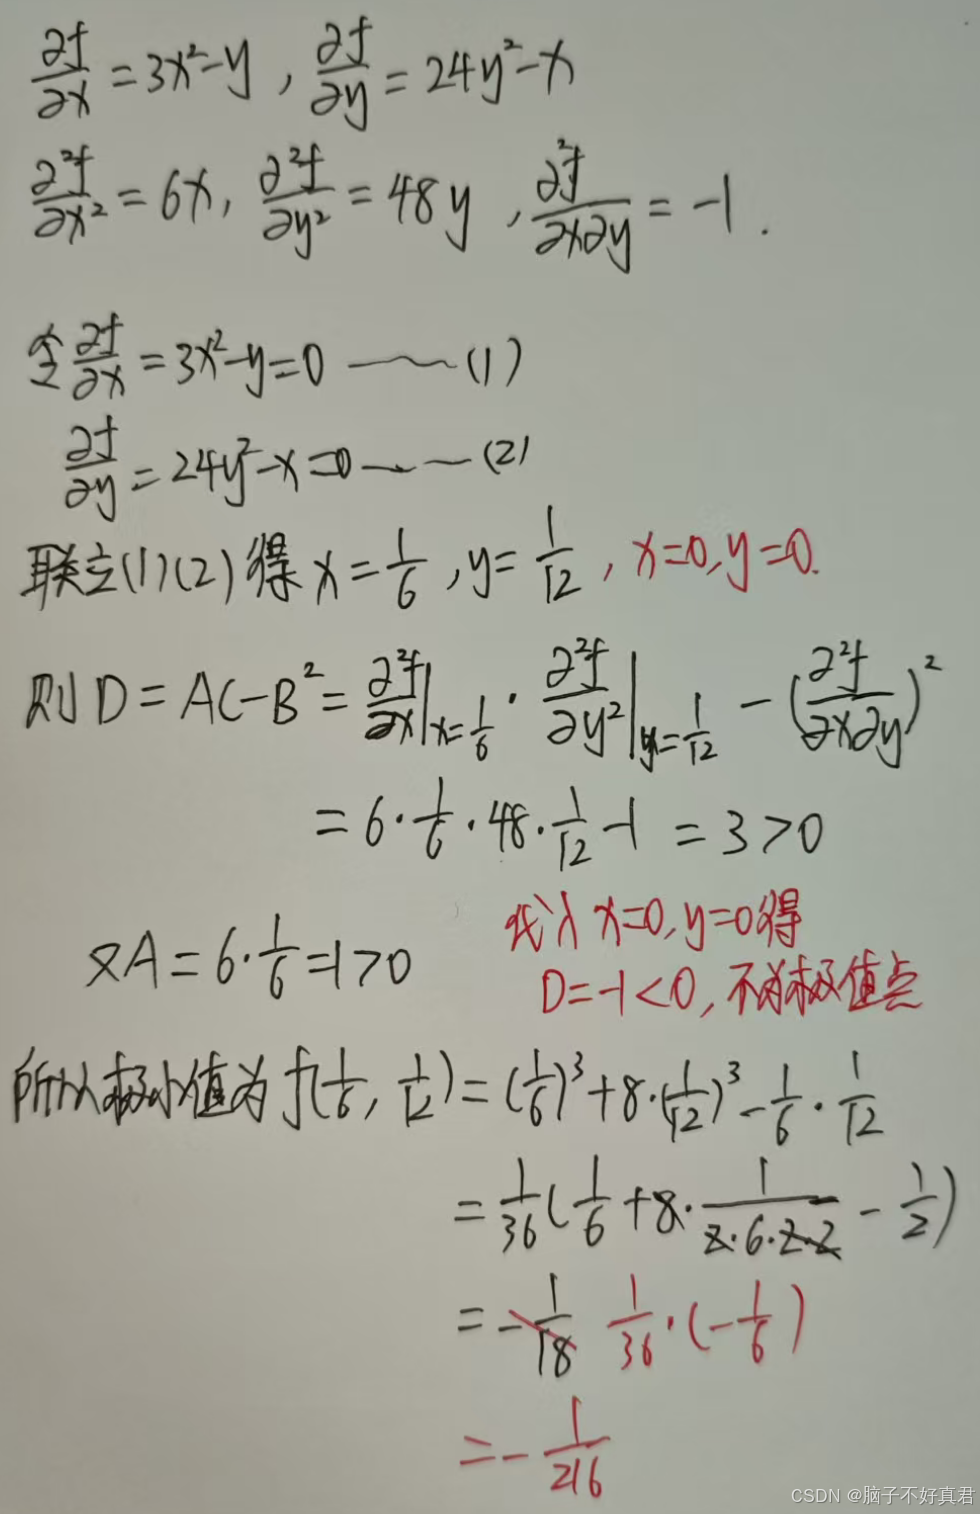 ∂f/∂x = 3x²-y , ∂f/∂y = 24y²-x
∂²f/∂x² = 6x, ∂²f/∂y² = 48y , ∂²f/∂x∂y = -1 .
令 ∂f/∂x = 3x²-y=0 —— (1)
∂f/∂y = 24y²-x=0 —— (2)
联立(1)(2)得 x = 1/6 , y = 1/12 , x=0, y=0.
则 D = AC-B² = ∂²f/∂x|x=1/6 · ∂²f/∂y²|y=1/12 - (∂²f/∂x∂y)²
= 6·1/6·48·1/12-1 = 3>0
又A = 6·1/6=1>0
代入 x=0, y=0得
D=-1<0, 不为极值点
所以极小值为 f(1/6, 1/12) = (1/6)³+8·(1/12)³-1/6·1/12
= 1/36(1/6+8·1/2·6·2·2 - 1/2)
= -1/18 1/36·(-1/6)
= -1/216
CSDN @脑子不好真君